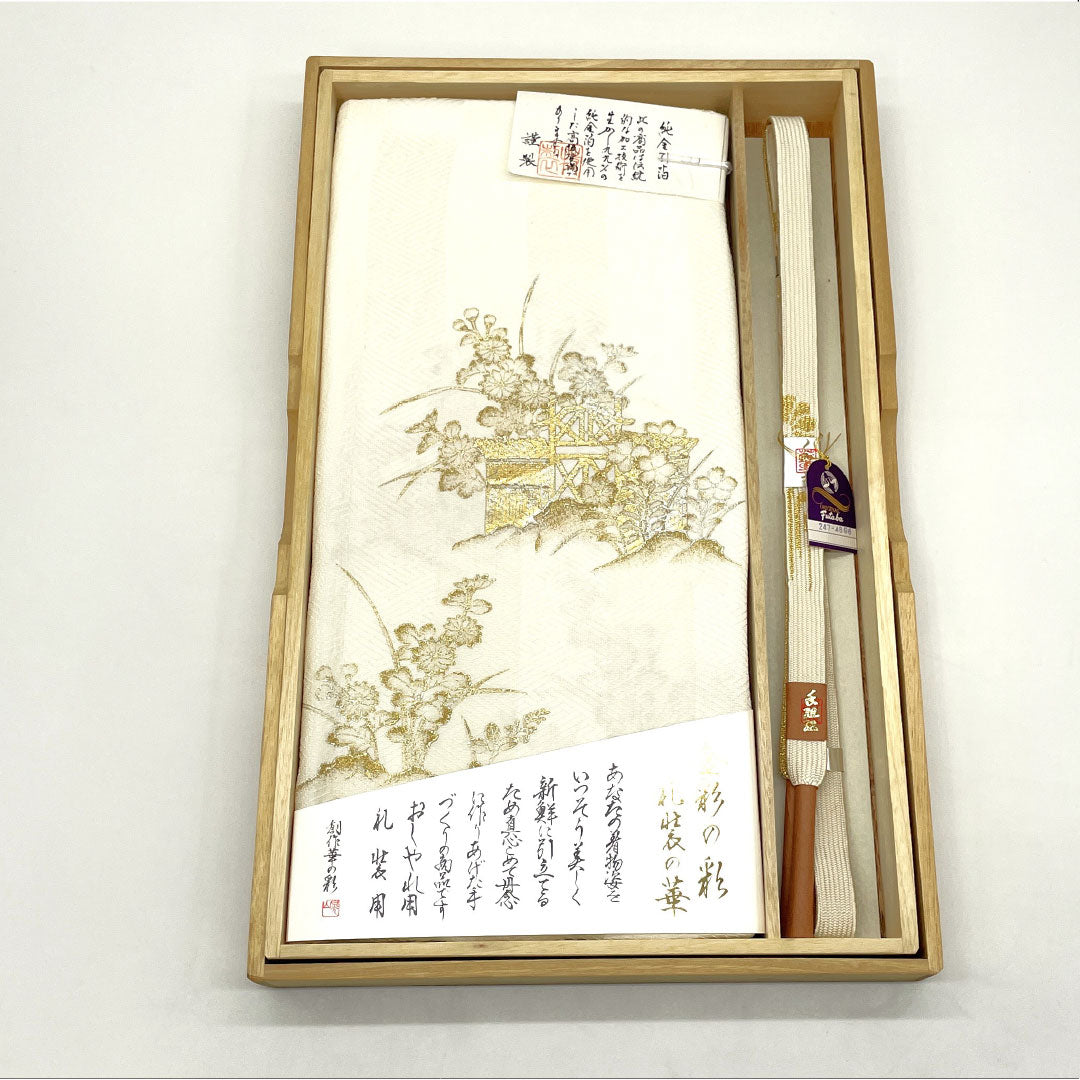 純金引箔
此の商品は伝統
的な加工技術を
生かし九九％の
純金箔を使用
した高級
あります
謹製
彩の彩
礼装の華
あなたの着物姿を
いっそう美しく
新鮮に引立てる
ため真心こめて丹念
に作りあげた手
づくりの商品です
おしゃれ用
礼装用
創作華の彩
Futaba
247-4806
手組